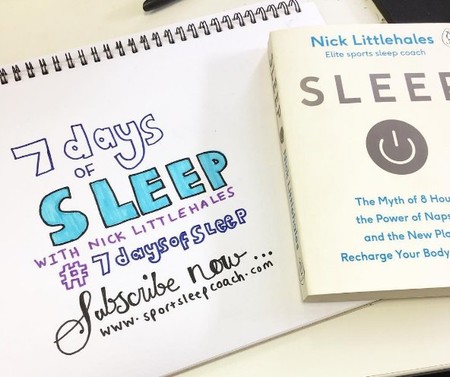 7 days
OF
SLEEP
WITH NICK LITTLEHALES
#7daysofSLEEP
Subscribe now...
www.sportsleepcoach.com
Nick Littlehales
Elite sports sleep coach
SLEEP
The Myth of 8 Hou
the Power of Naps
and the New Pla
Recharge Your Body